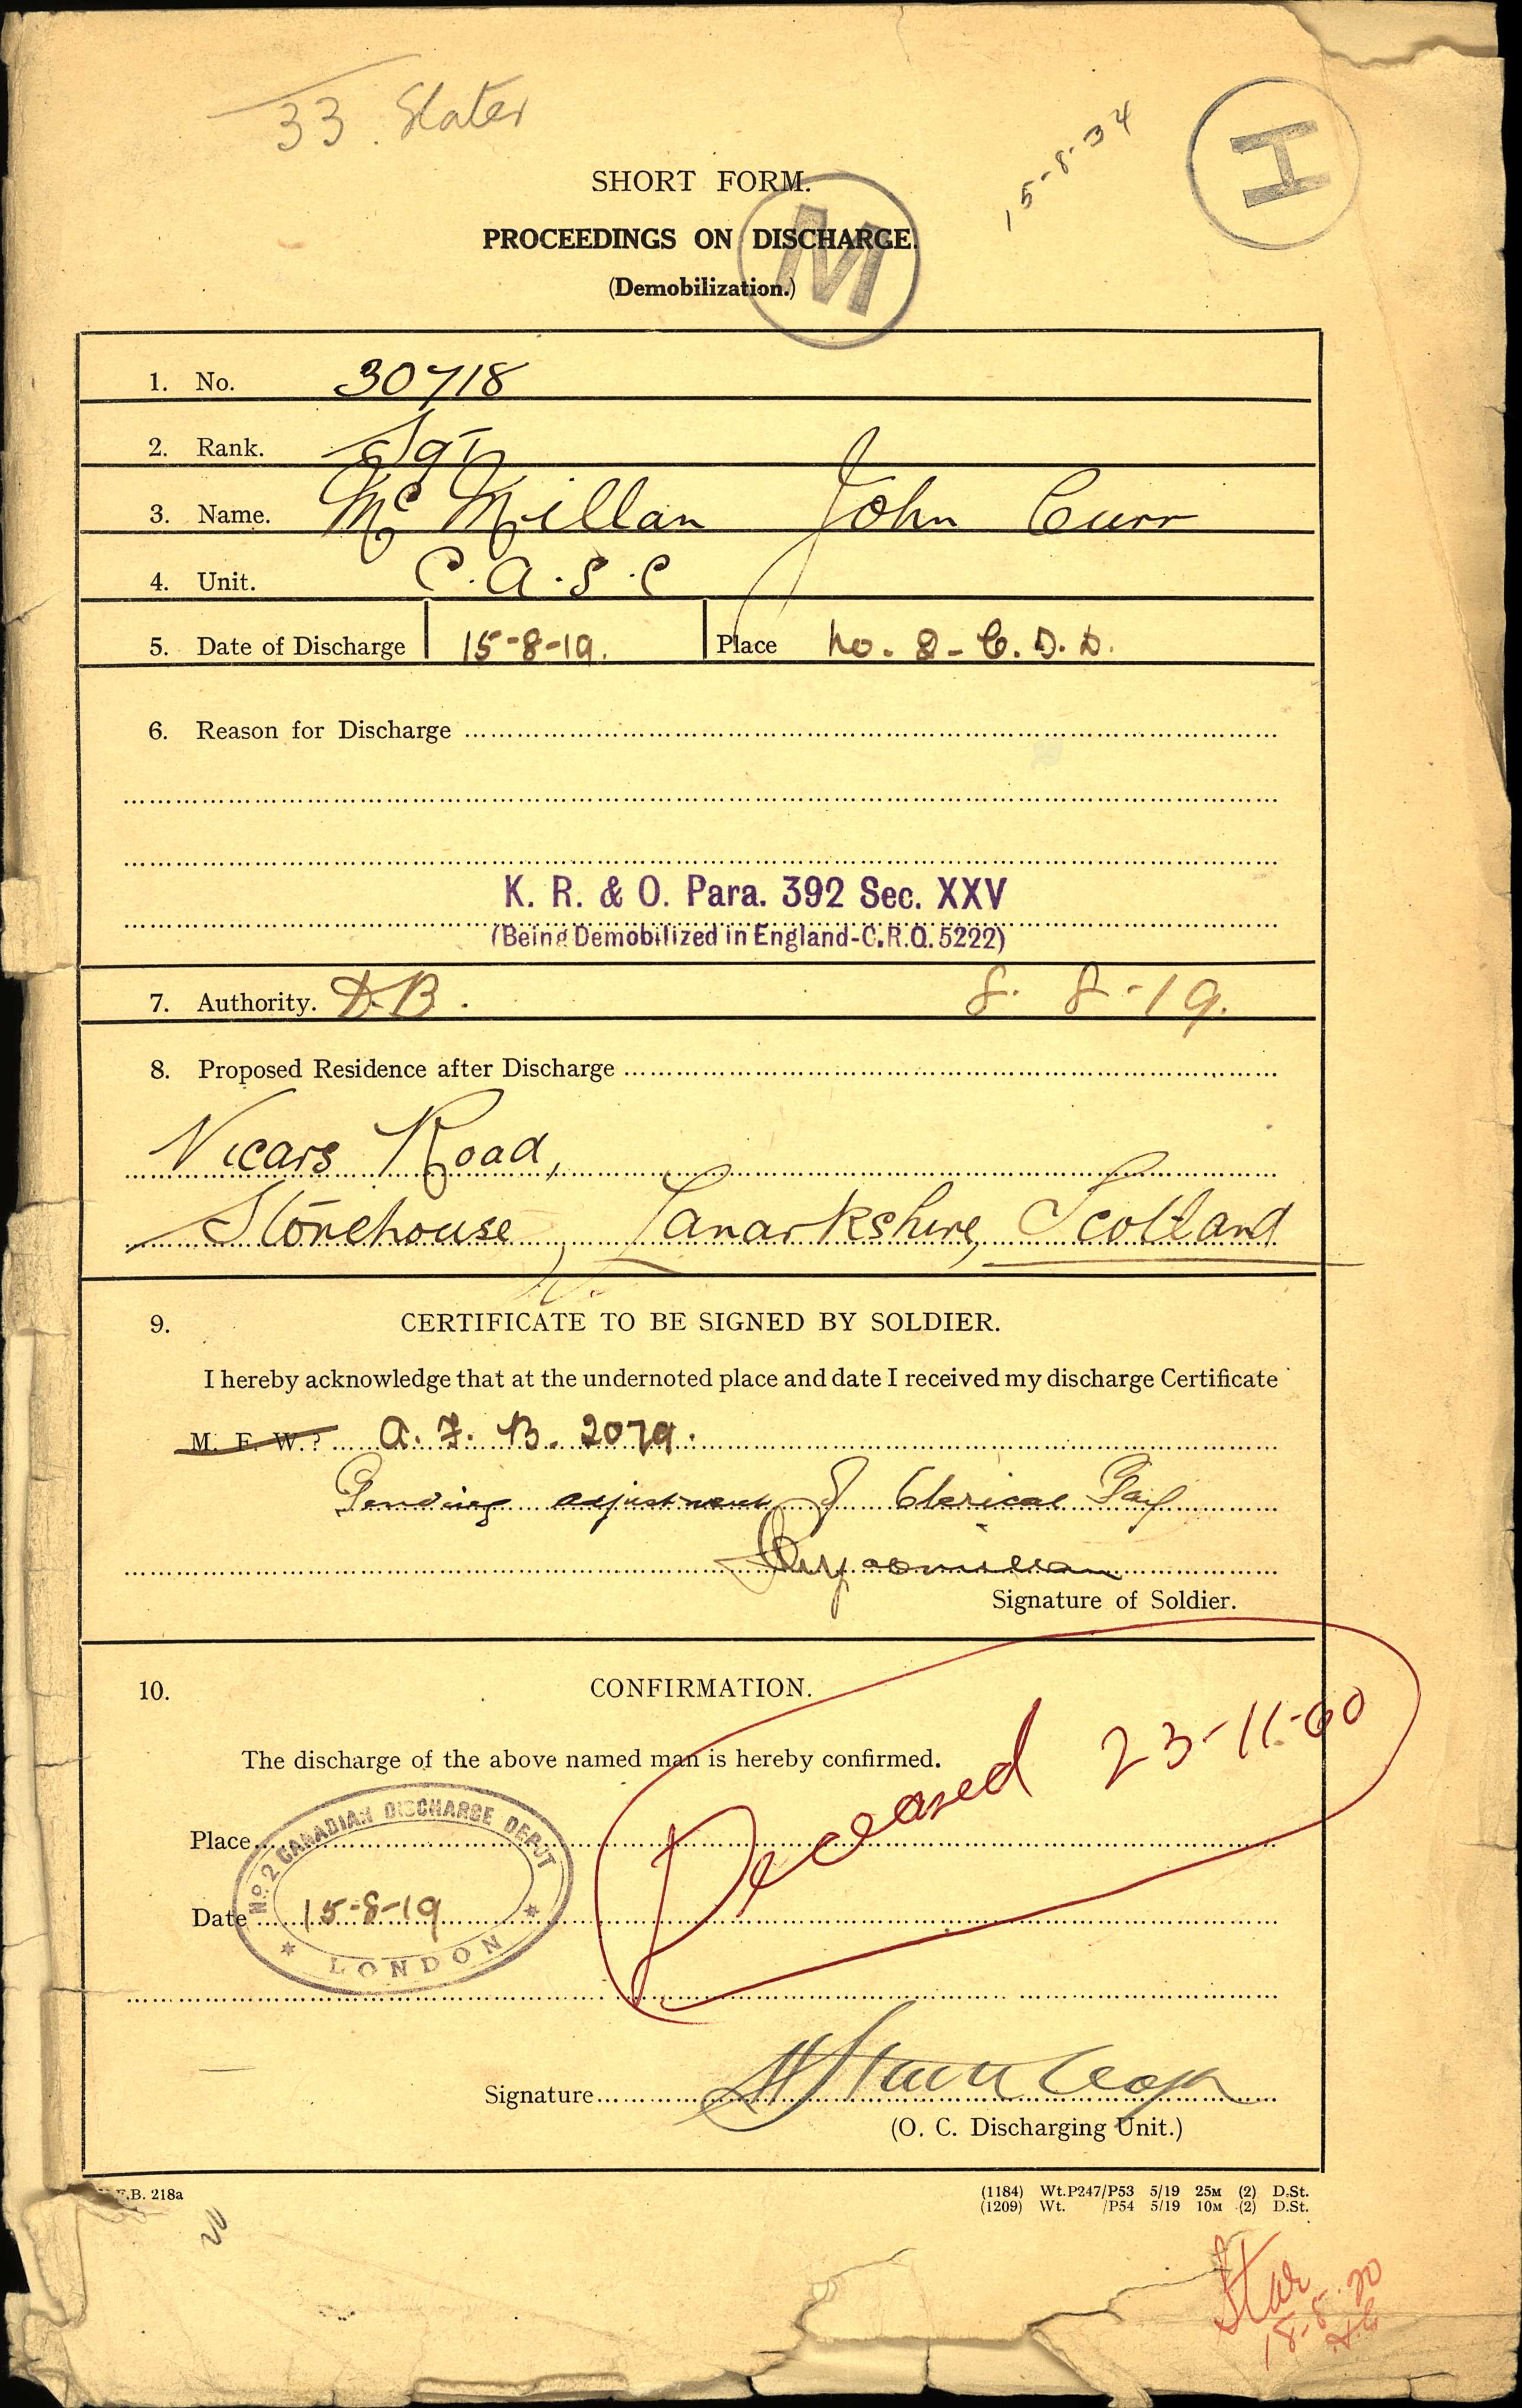 33. Slater
15-8-34
H
SHORT FORM.
PROCEEDINGS ON DISCHARGE.
(Demobilization.)
M
1. No. 30718
2. Rank. Sgt
3. Name. McMillan John Curr
4. Unit. C.A.S.C
5. Date of Discharge 15-8-19. Place No. 2 - C.D.D.
6. Reason for Discharge
K. R. & O. Para. 392 Sec. XXV
(Being Demobilized in England-C.R.O. 5222)
7. Authority. D.B. 8-8-19.
8. Proposed Residence after Discharge
Vicars Road,
Stonehouse, Lanarkshire, Scotland
9. CERTIFICATE TO BE SIGNED BY SOLDIER.
I hereby acknowledge that at the undernoted place and date I received my discharge Certificate
M. F. W.? A.F. B. 2079.
Pending adjustment of Clerical Pay
Signature of Soldier.
10. CONFIRMATION.
The discharge of the above named man is hereby confirmed.
Deceased 23-11-60
Place
No. 2 CANADIAN DISCHARGE DEPOT
Date 15-8-19
LONDON
Signature
(O. C. Discharging Unit.)
F.B. 218a
(1184) Wt.P247/P53 5/19 25M (2) D.St.
(1209) Wt. /P54 5/19 10M (2) D.St.
Star
18-5-20